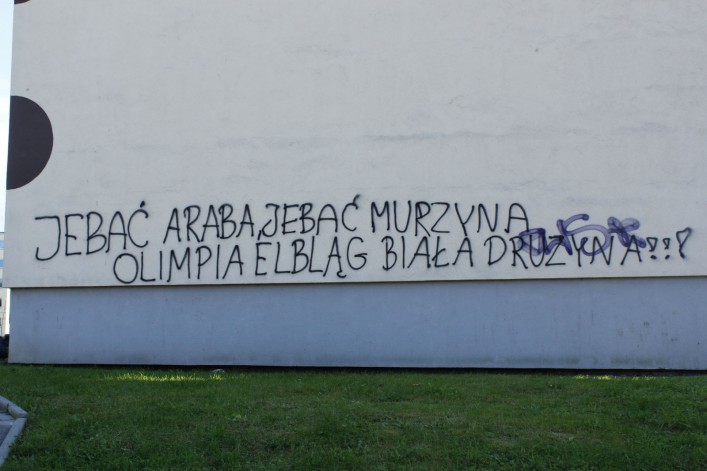 JEBAĆ ARABA, JEBAĆ MURZYNA
OLIMPIA ELBLĄG BIAŁA DRUŻYNA???